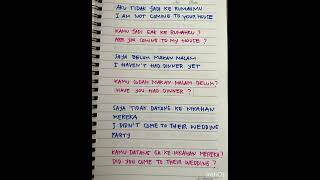 AKU TIDAK JADI KE RUMAHMU
I AM NOT COMING TO YOUR HOUSE
KAMU JADI GAK KE RUMAHKU?
ARE YOU COMING TO MY HOUSE?
SAYA BELUM MAKAN MALAM
I HAVEN'T HAD DINNER YET
KAMU SUDAH MAKAN MALAM BELUM?
HAVE YOU HAD DINNER?
SAYA TIDAK DATANG KE NIKAHAN
MEREKA
I DIDN'T COME TO THEIR WEDDING
PARTY
KAMU DATANG GA KE NIKAHAN MEREKA?
DID YOU COME TO THEIR WEDDING?